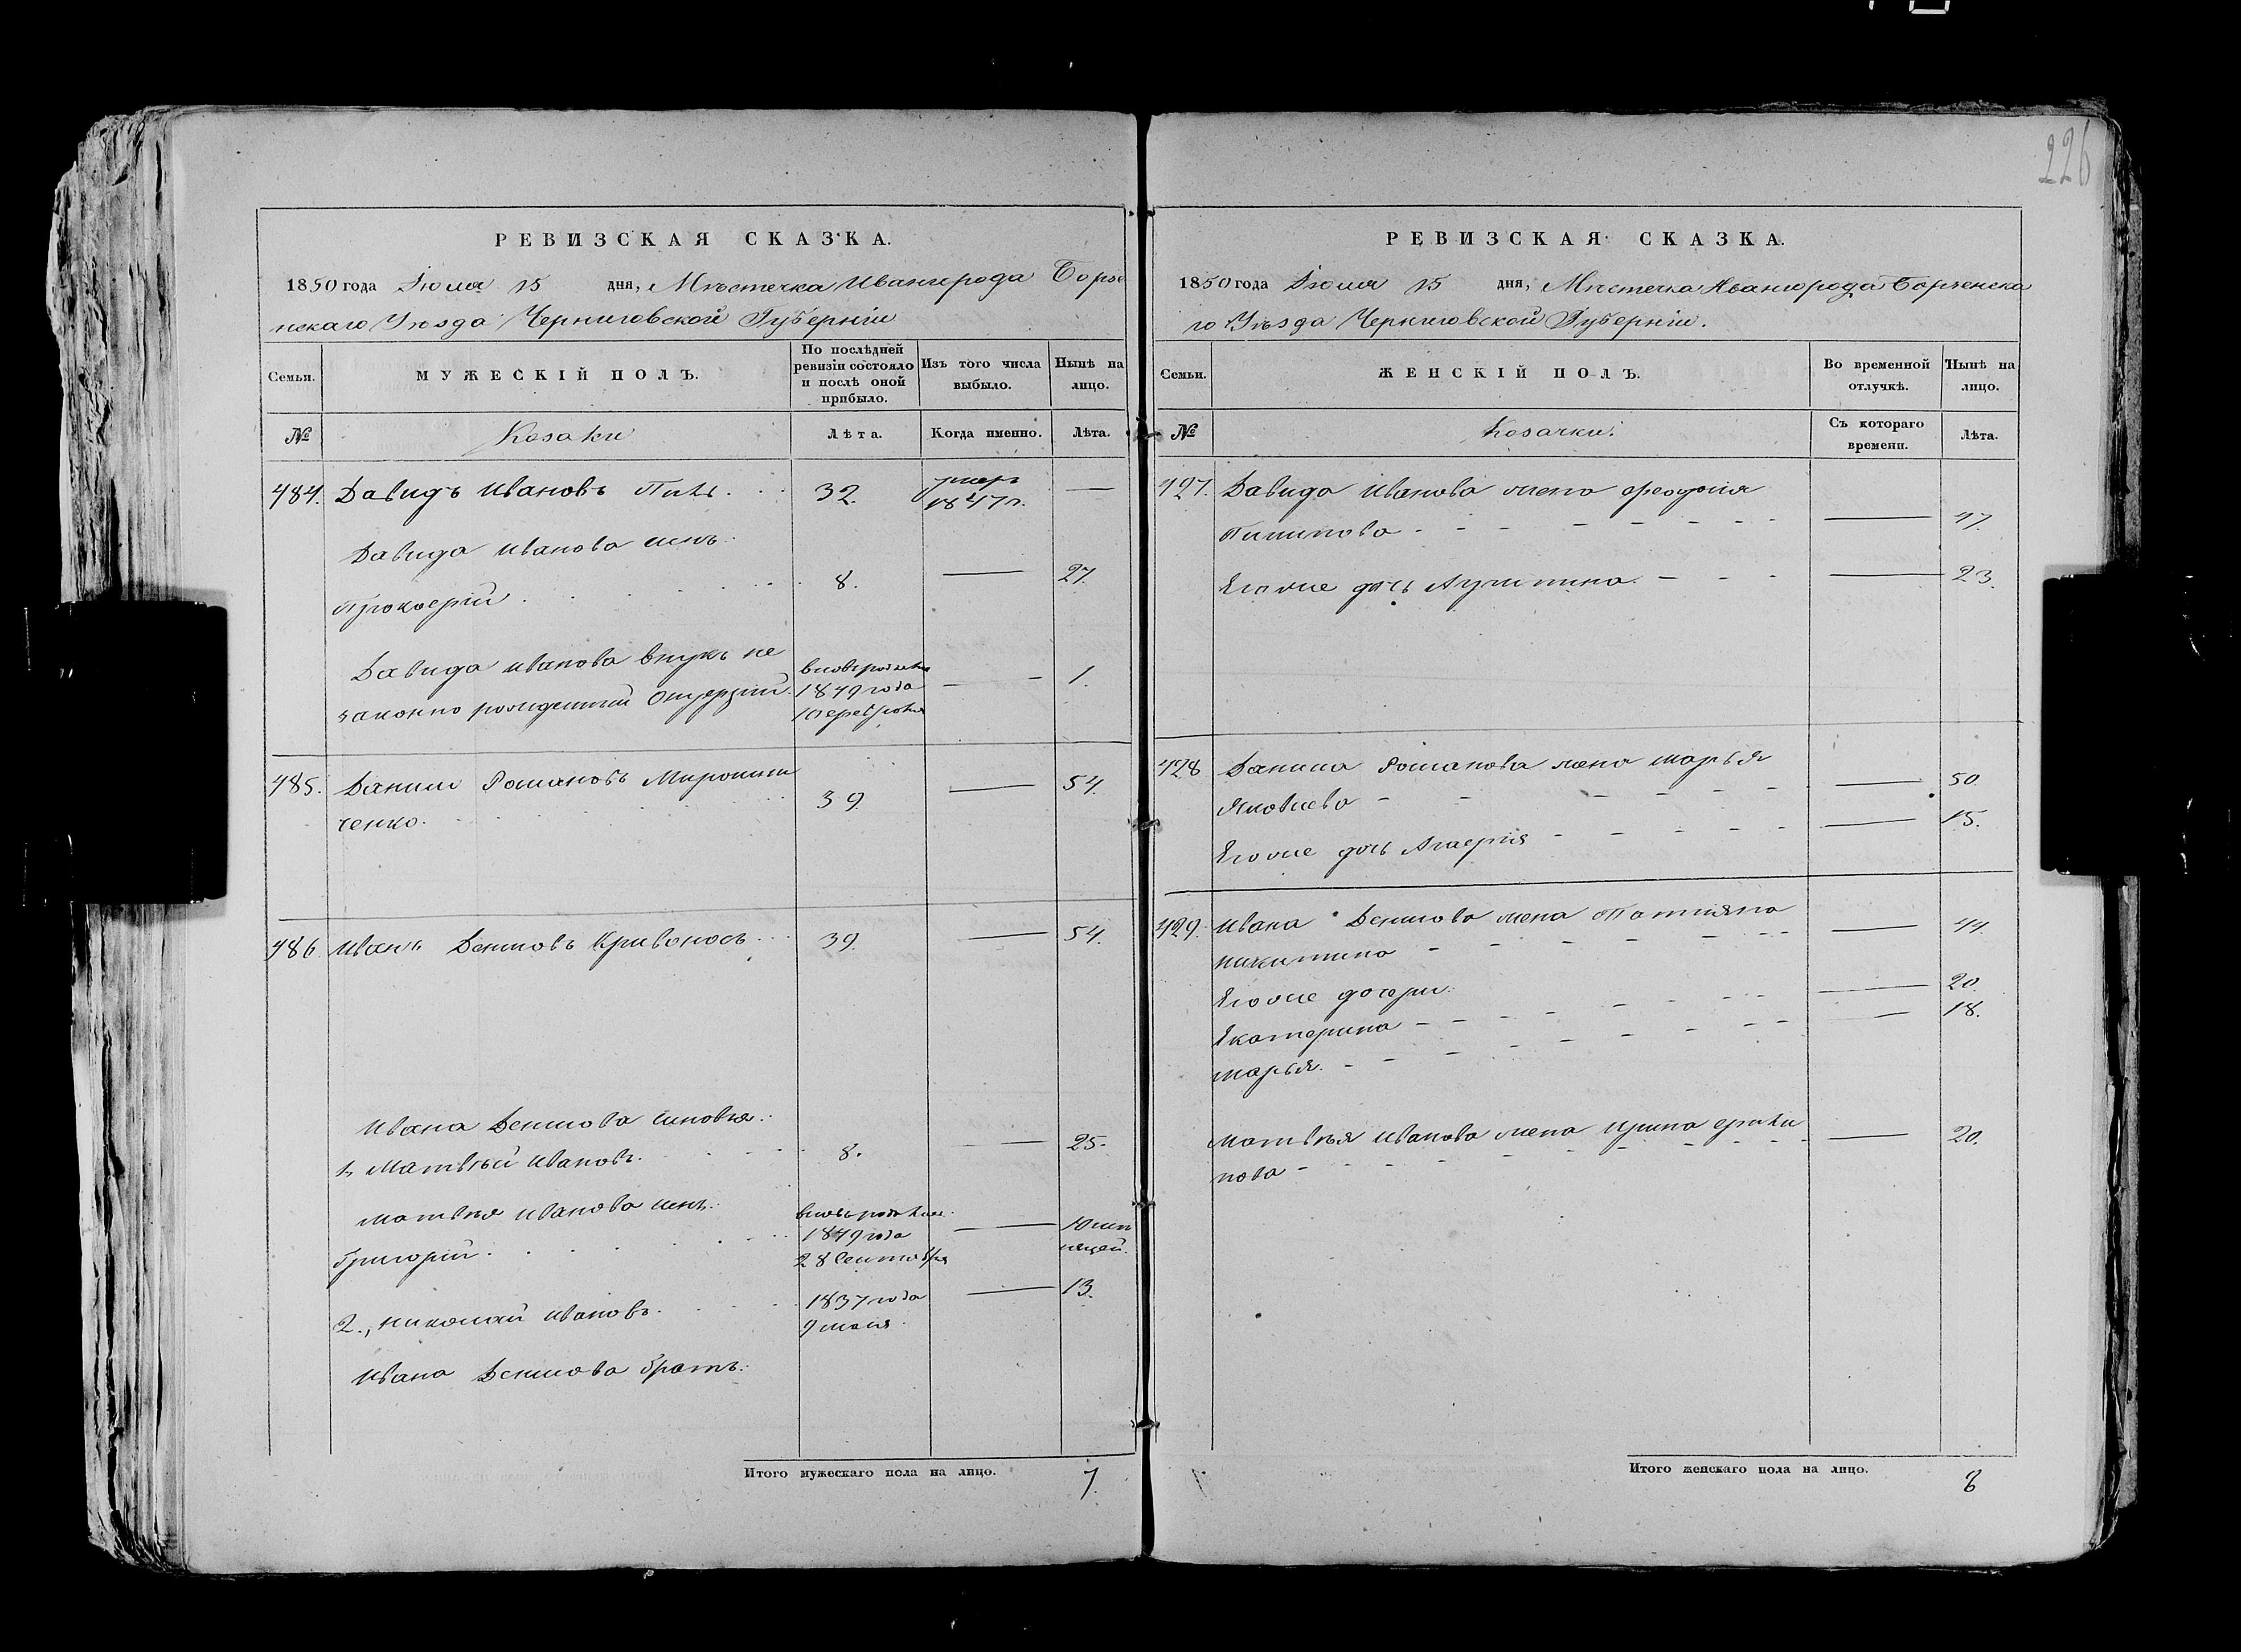 226
РЕВИЗСКАЯ СКАЗКА.
1850 года Іюля 15 дня, Мѣстечка Ивангорода Борзе
нскаго Уѣзда Черниговской Губерніи
Семьи.
МУЖЕСКІЙ ПОЛЪ.
По послѣдней
ревизіи состояло
и послѣ оной
прибыло.
Изъ того числа
выбыло.
Нынѣ на
лицо.
№
Козаки
Лѣта.
Когда именно.
Лѣта.
484. Давидъ Ивановъ 32. умеръ
1847 г. —
Давида Иванова сынъ:
Прокофій 8. — 27.
Давида Иванова внукъ не
законно рожденный вновь рожден
1849 года — 1.
10 февраля
485. Данило Романовъ Мирошни
ченко. 39. — 54.
486. Иванъ Денисовъ Кривоносъ 39. — 54.
Ивана Денисова сыновья:
1, Матвѣй Ивановъ. 8. — 25.
Матвѣя Иванова сынъ:
Григорій. вновь рожден
1849 года
28 Сентября — 10 мѣс
яцей.
2., Николай Ивановъ. 1837 года
9 — 13.
Ивана Денисова братъ:
Итого мужескаго пола на лицо. 7.
РЕВИЗСКАЯ СКАЗКА.
1850 года Іюля 15 дня, Мѣстечка Ивангорода Борзенска
го Уѣзда Черниговской Губерніи.
Семьи.
ЖЕНСКІЙ ПОЛЪ.
Во временной
отлучкѣ.
Нынѣ на
лицо.
№
Козачки.
Съ котораго
времени.
Лѣта.
427. Давида Иванова жена
— 47.
Его же дочь — 23.
428 Данила Романова жена Марья
Яковлева — 50.
Его же дочь Агафія — 15.
429. Ивана Денисова жена Татіяна
Никитина — 44.
Его же дочери:
Екатерина — 20.
Марья. — 18.
Матвѣя Иванова жена Ирина
пова — 20.
Итого женскаго пола на лицо. 8